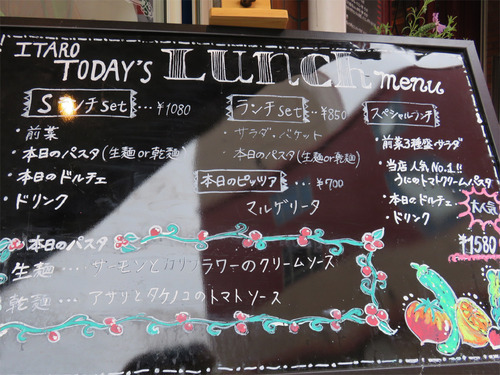 ITARO
TODAY'S Lunch menu
Sランチset … ¥1080
・前菜
・本日のパスタ(生麺or乾麺)
・本日のドルチェ
・ドリンク
ランチset … ¥850
・サラダ・バケット
・本日のパスタ(生麺or乾麺)
本日のピッツァ … ¥700
マルゲリータ
スペシャルランチ
・前菜3種盛・サラダ
・当店人気No.1!!
うにのトマトクリームパスタ
・本日のドルチェ
・ドリンク
大人気
¥1580
本日のパスタ
生麺 … サーモンとカリフラワーのクリームソース
乾麺 … アサリとタケノコのトマトソース